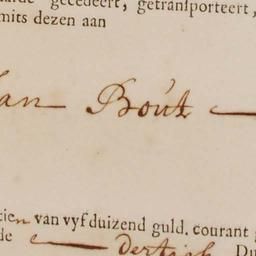 gecedeert, getransporteert,
mits dezen aan
an Boút
tien van vyf duizend guld. courant
de dertigh Du